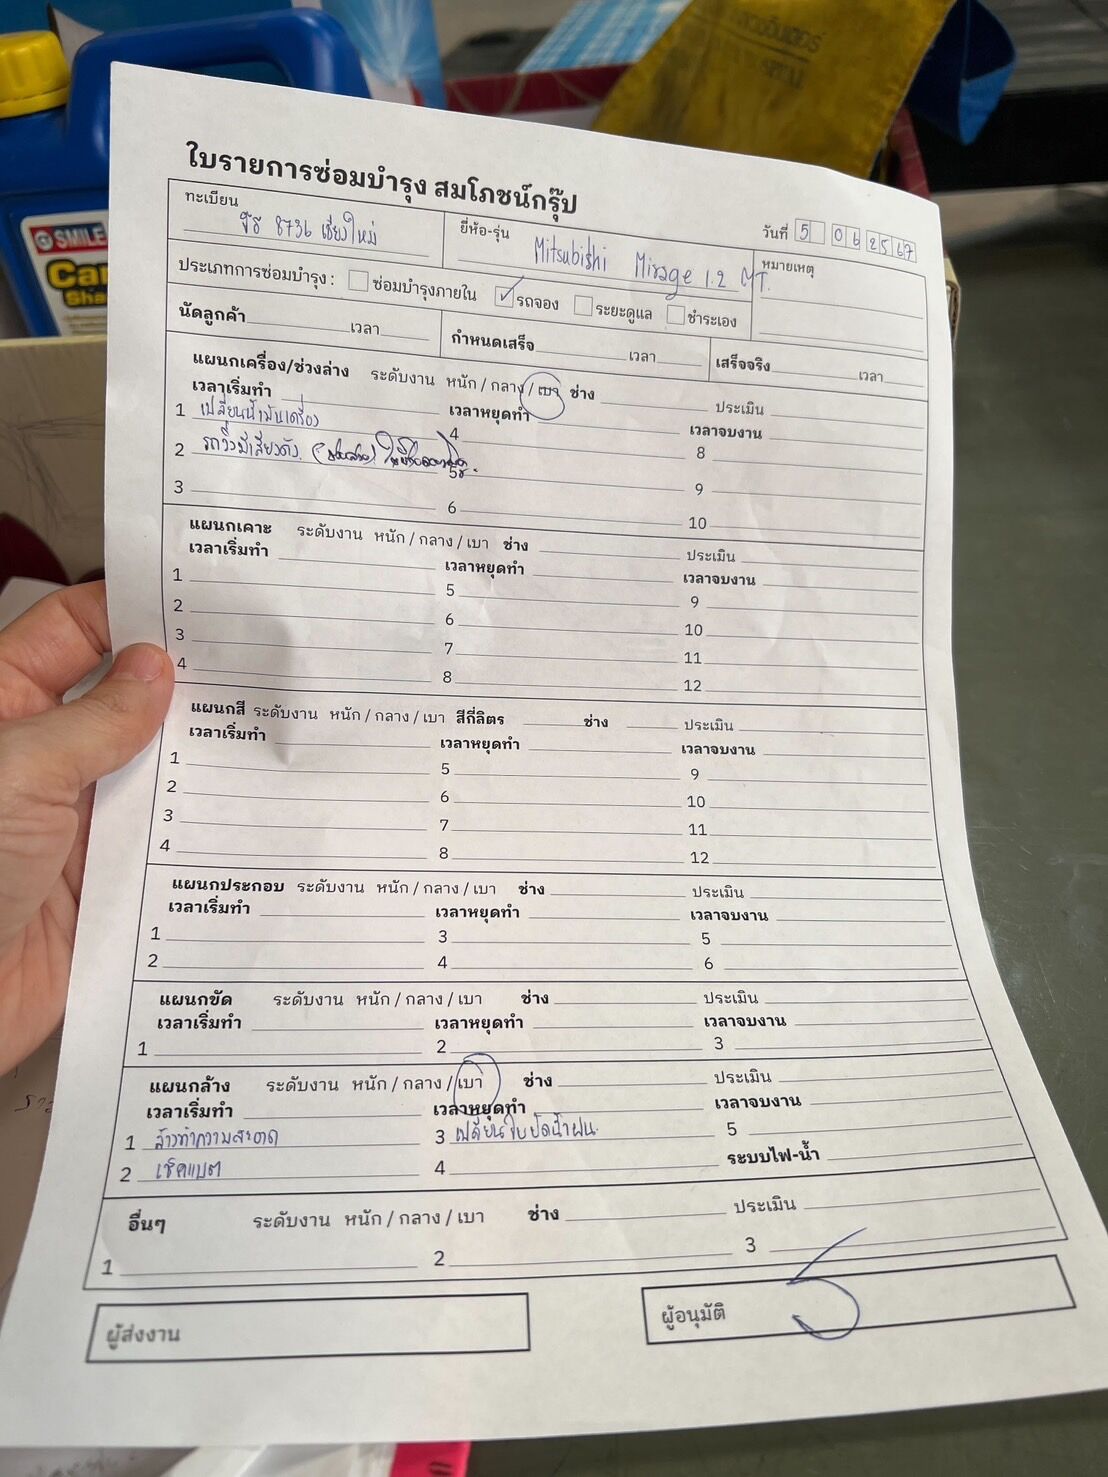 SMILE
Car
Sha
ใบรายการซ่อมบำรุง สมโภชน์กรุ๊ป
วันที่ 5 06 2567
ทะเบียน 8736 เชียงใหม่
ยี่ห้อ-รุ่น Mitsubishi Mirage 1.2 MT.
หมายเหตุ
ประเภทการซ่อมบำรุง : ซ่อมบำรุงภายใน รถจอง ระยะดูแล ชำระเอง
นัดลูกค้า เวลา กำหนดเสร็จ เวลา เสร็จจริง เวลา
แผนกเครื่อง/ช่วงล่าง ระดับงาน หนัก / กลาง / เบา ช่าง ประเมิน
เวลาเริ่มทำ เวลาหยุดทำ เวลาจบงาน
1 เปลี่ยนน้ำมันเครื่อง 4 8
2 รถวิ่งมีเสียงดัง 5 9
3 6 10
แผนกเคาะ ระดับงาน หนัก / กลาง / เบา ช่าง ประเมิน
เวลาเริ่มทำ เวลาหยุดทำ เวลาจบงาน
1 5 9
2 6 10
3 7 11
4 8 12
แผนกสี ระดับงาน หนัก / กลาง / เบา สีกี่ลิตร ช่าง ประเมิน
เวลาเริ่มทำ เวลาหยุดทำ เวลาจบงาน
1 5 9
2 6 10
3 7 11
4 8 12
แผนกประกอบ ระดับงาน หนัก / กลาง / เบา ช่าง ประเมิน
เวลาเริ่มทำ เวลาหยุดทำ เวลาจบงาน
1 3 5
2 4 6
แผนกขัด ระดับงาน หนัก / กลาง / เบา ช่าง ประเมิน
เวลาเริ่มทำ เวลาหยุดทำ เวลาจบงาน
1 2 3
แผนกล้าง ระดับงาน หนัก / กลาง / เบา ช่าง ประเมิน
เวลาเริ่มทำ เวลาหยุดทำ เวลาจบงาน
1 ล้างทำความสะอาด 3 เปลี่ยนใบปัดน้ำฝน 5
2 เช็คแบต 4 ระบบไฟ-น้ำ
อื่นๆ ระดับงาน หนัก / กลาง / เบา ช่าง ประเมิน
1 2 3
ผู้ส่งงาน ผู้อนุมัติ